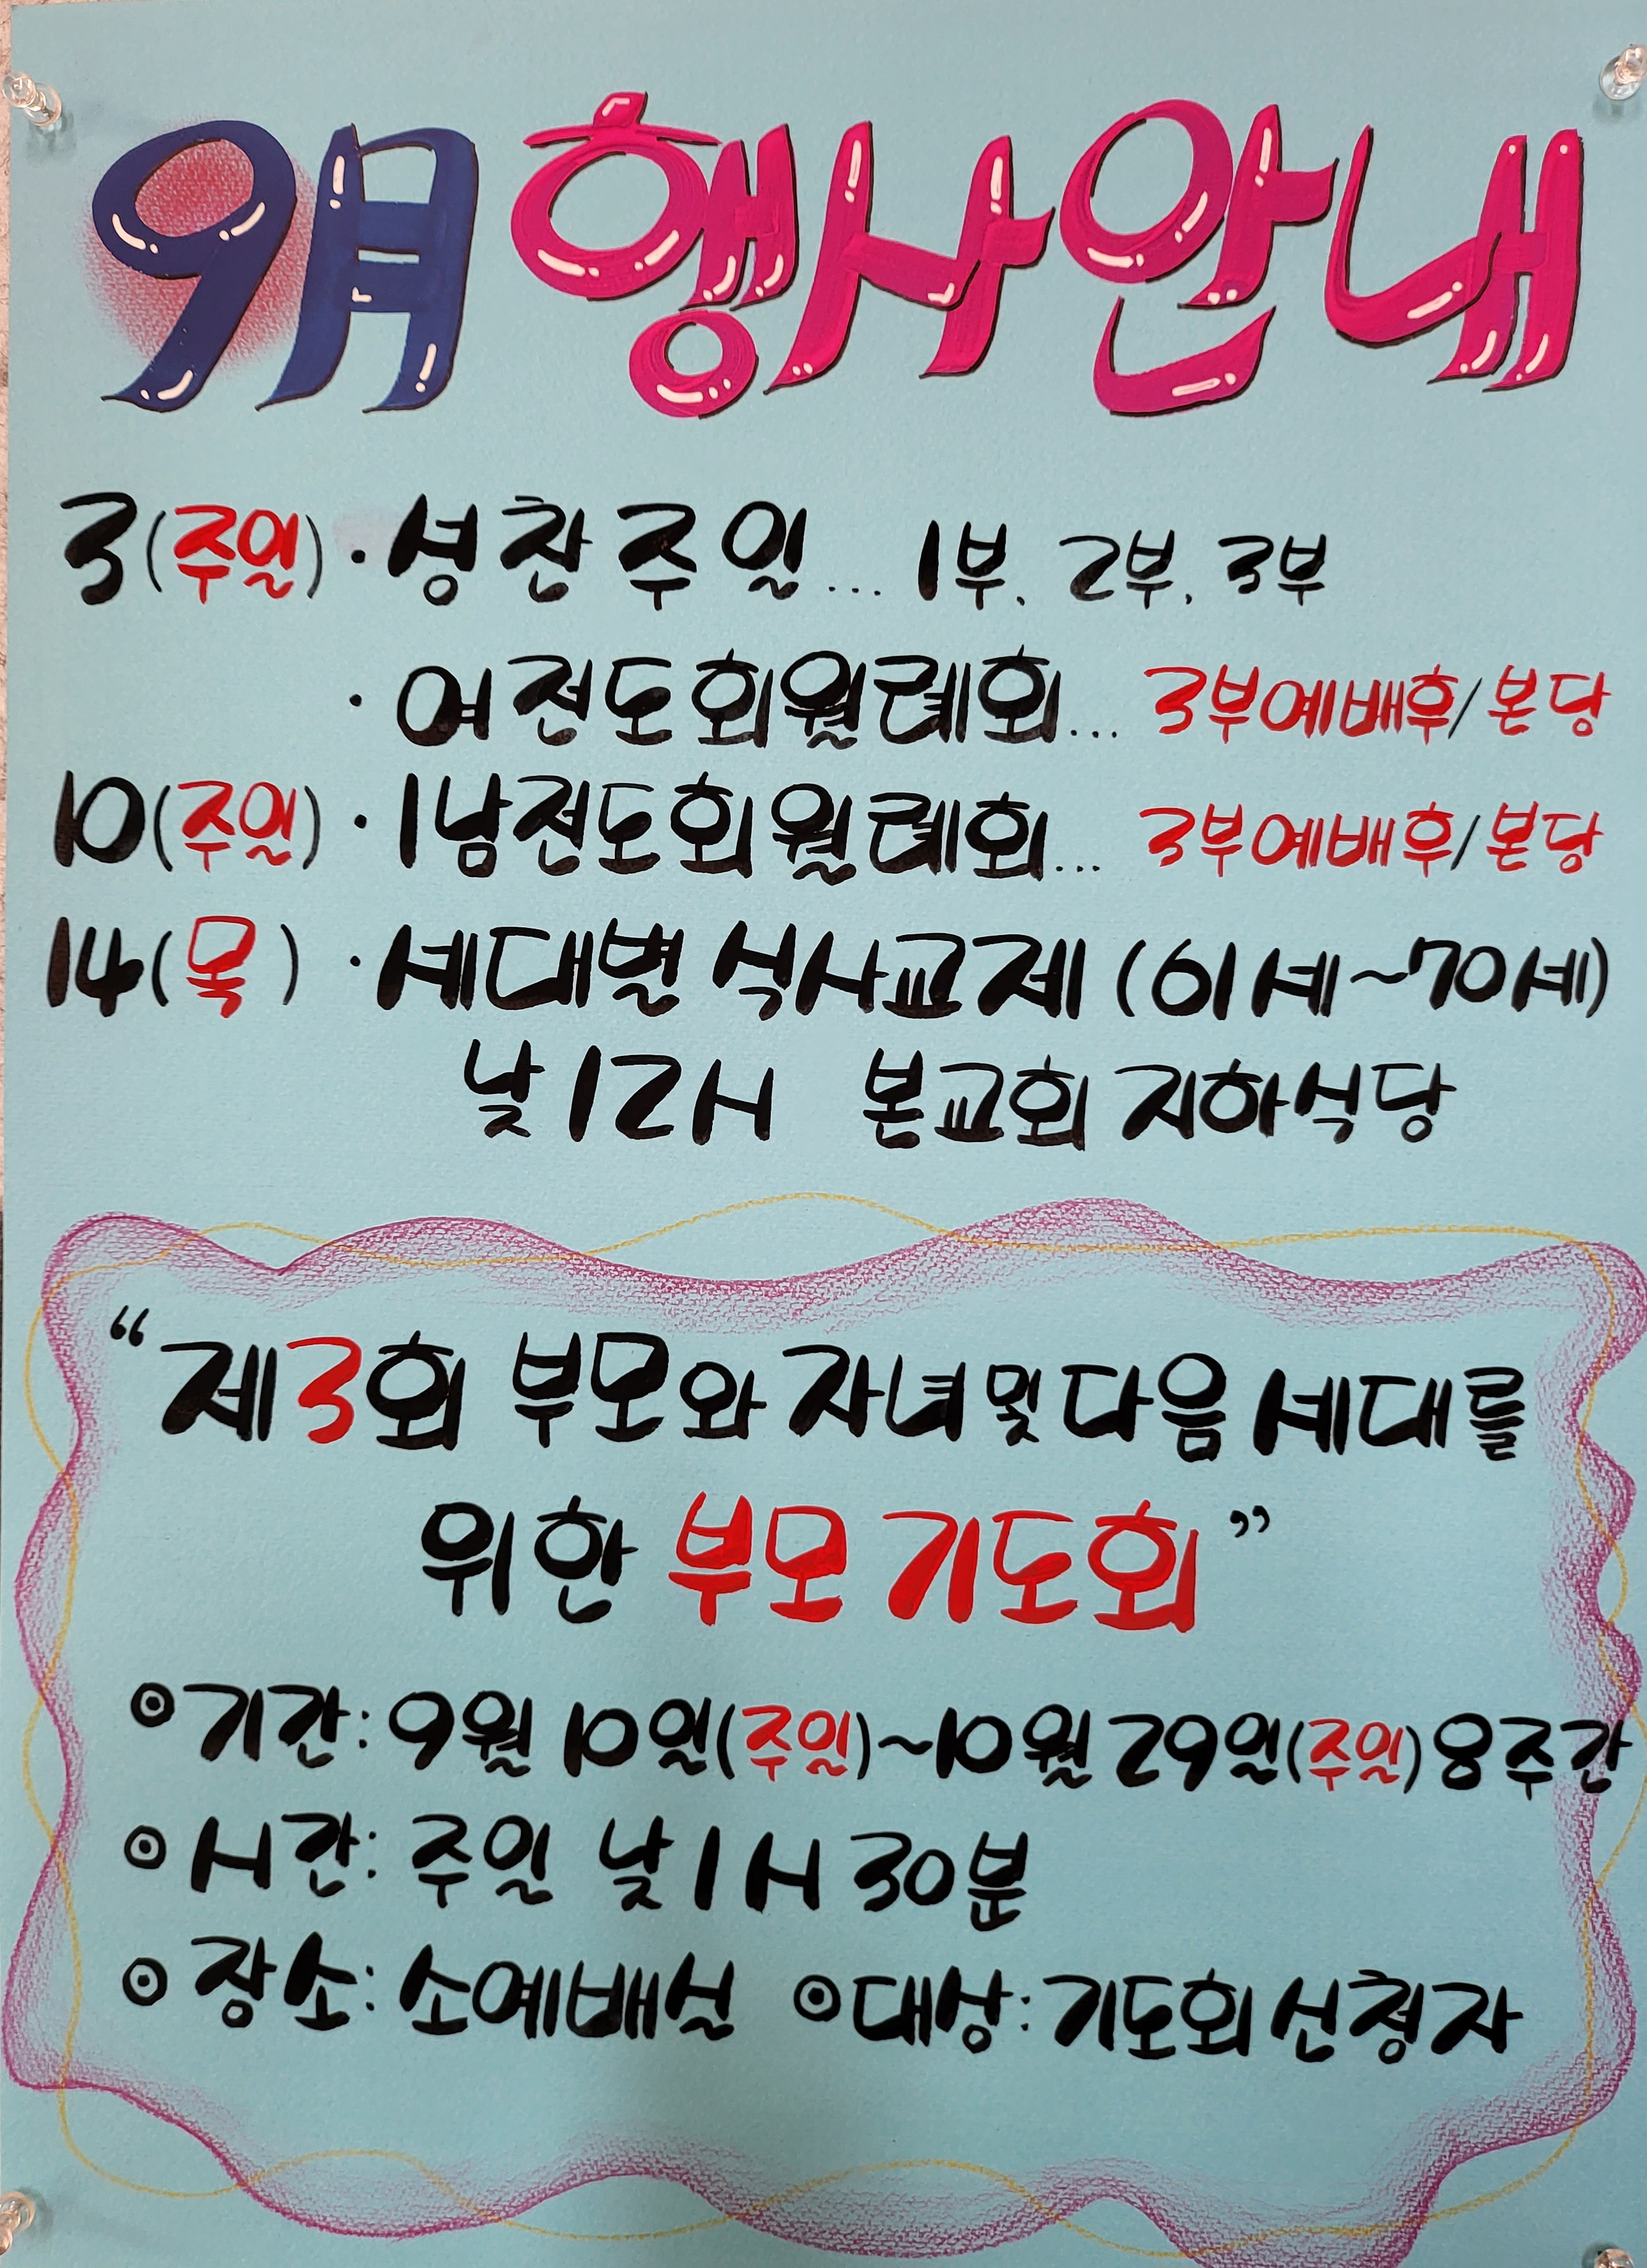 9月 행사안내
3(주일)·성찬주일... 1부. 2부. 3부
·여전도회월례회... 3부예배후/본당
10(주일)·1남전도회월례회... 3부예배후/본당
14(목)·세대별 식사교제 (61세~70세)
낮12시 본교회 지하식당
“제3회 부모와 자녀및다음세대를
위한 부모기도회”
⊙기간: 9월 10일(주일)~10월29일(주일)8주간
⊙시간: 주일 낮1시30분
⊙장소: 소예배실 ⊙대상: 기도회신청자